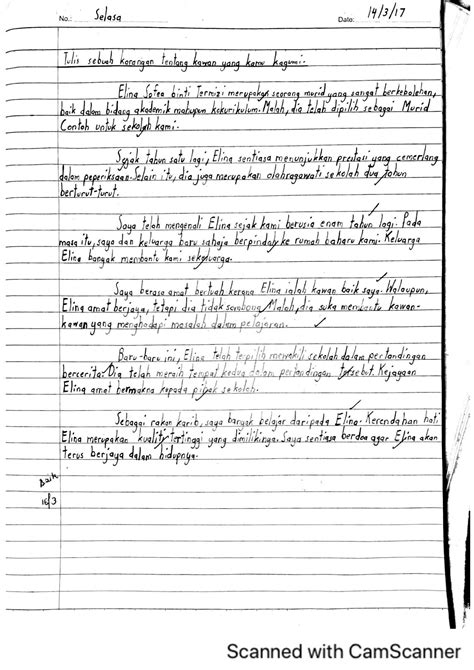 No.: Selasa Date: 14/3/17
Tulis sebuah karangan tentang kawan yang kamu kagumi.
Elina Sofea binti Termizi merupakan seorang murid yang sangat berkebolehan,
baik dalam bidang akademik mahupun kokurikulum. Malah, dia telah dipilih sebagai Murid
Contoh untuk sekolah kami.
Sejak tahun satu lagi, Elina sentiasa menunjukkan prestasi yang cemerlang
dalam peperiksaan. Selain itu, dia juga merupakan olahragawati sekolah dua tahun
berturut-turut.
Saya telah mengenali Elina sejak kami berusia enam tahun lagi. Pada
masa itu, saya dan keluarga baru sahaja berpindah ke rumah baharu kami. Keluarga
Elina banyak membantu kami sekeluarga.
Saya berasa amat bertuah kerana Elina ialah kawan baik saya. Walaupun,
Elina amat berjaya, tetapi dia tidak sombong. Malah, dia suka membantu kawan-
kawan yang menghadapi masalah dalam pelajaran.
Baru-baru ini, Elina telah terpilih mewakili sekolah dalam pertandingan
bercerita. Dia telah meraih tempat kedua dalam pertandingan tersebut. Kejayaan
Elina amat bermakna kepada pihak sekolah.
Sebagai rakan karib, saya banyak belajar daripada Elina. Kerendahan hati
Elina merupakan kualiti tertinggi yang dimilikinya. Saya sentiasa berdoa agar Elina akan
terus berjaya dalam hidupnya.
Baik
16/3
Scanned with CamScanner